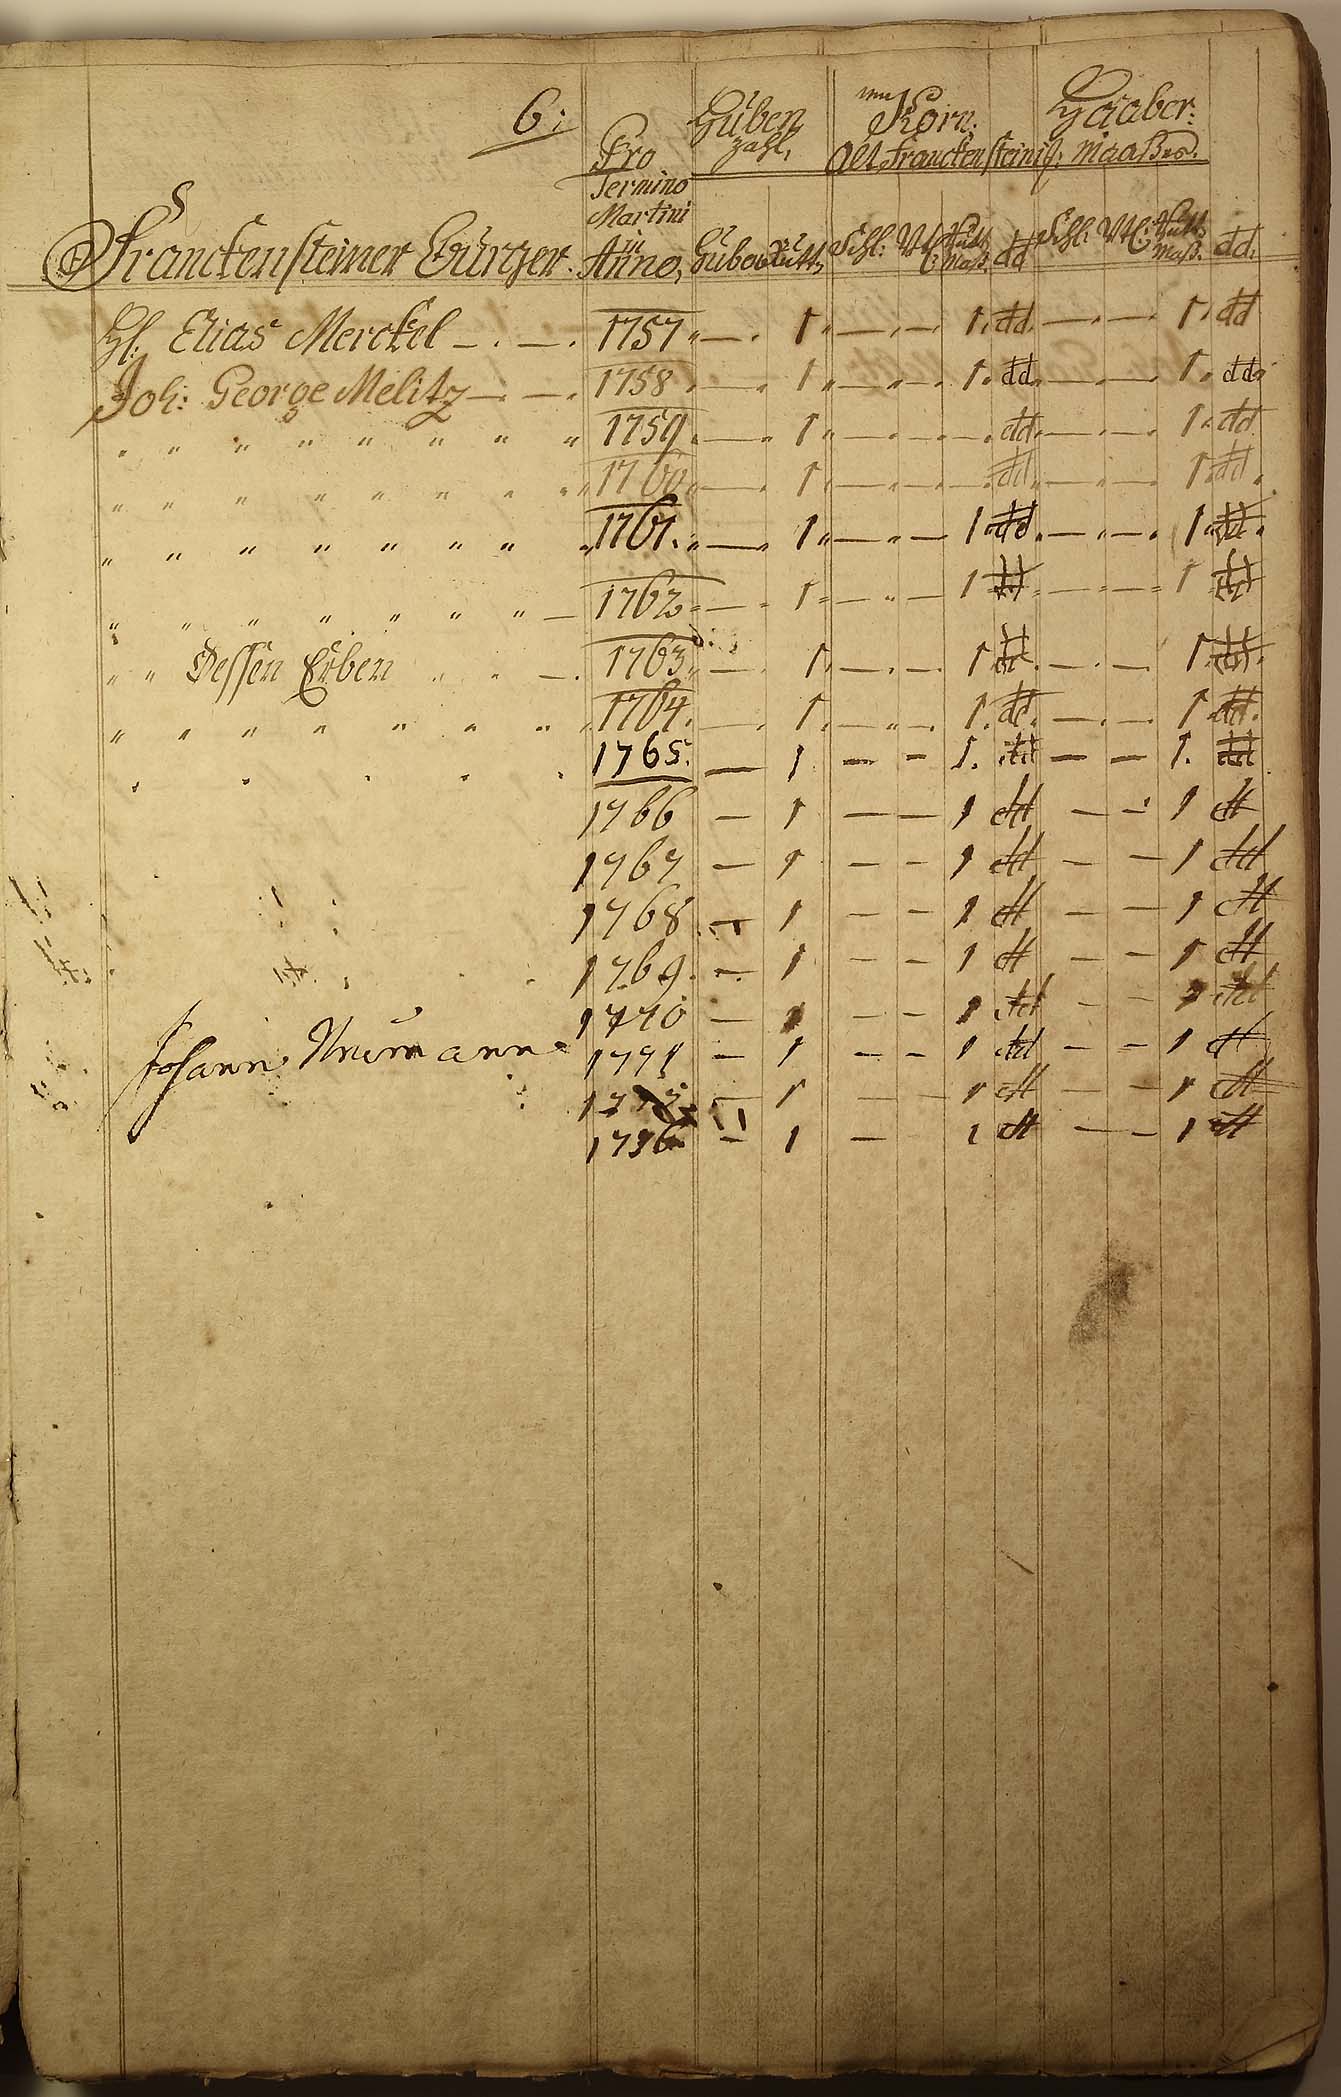 6:
Pro Huben Korn: Haaber:
zahl,
Termino Alt Franckensteinis: Maaßes.
Martini
in
Franckensteiner Bürger. Anno, Huben Rutt, Schl: Vtl: Maß. dd Schl: Vtl: Maß. dd.
H. Elias Merckel —.—. 1757 „—. 1 „—„—„ 1. dd. —„—. 1. dd
Joh: George Melitz —.—. 1758 „—„ 1 „—„—„ 1. dd. —„—. 1. dd.
„ „ „ „ „ „ „ „ 1759 „—„ 1 „—„—„—„ dd. —„—. 1. dd
„ „ „ „ „ „ „ „ 1760 „—„ 1 „—„—„—„ dd „—„—. 1. dd.
„ „ „ „ „ „ „ „ 1761. „—„ 1 „—„—„ 1 dd. —„—. 1 dd.
„ „ „ „ „ „ „ — 1762 „—„ 1 „—„— 1 dd „—„— 1 dd
„ „ Dessen Erben „ „ —. 1763 „—„ 1. —„—. 1. dd. —„— 1. dd.
„ „ „ „ „ „ „ „ 1764. —„ 1. —„—. 1. dd. —„—. 1. dd.
„ „ „ „ „ 1765. — 1 — — 1. dd — — 1. dd
1766 — 1 — — 1 dd — — 1 dd
1767 — 1 — — 1 dd — — 1 dd
1768 — 1 — — 1 dd — — 1 dd
1769. — 1 — — 1 dd — — 1 dd
1770 — 1 — — 1 dd — — 1 dd
Johann 1771 — 1 — — 1 dd — — 1 dd
— 1 — — 1 dd — — 1 dd
— 1 — 1 dd — — 1 dd